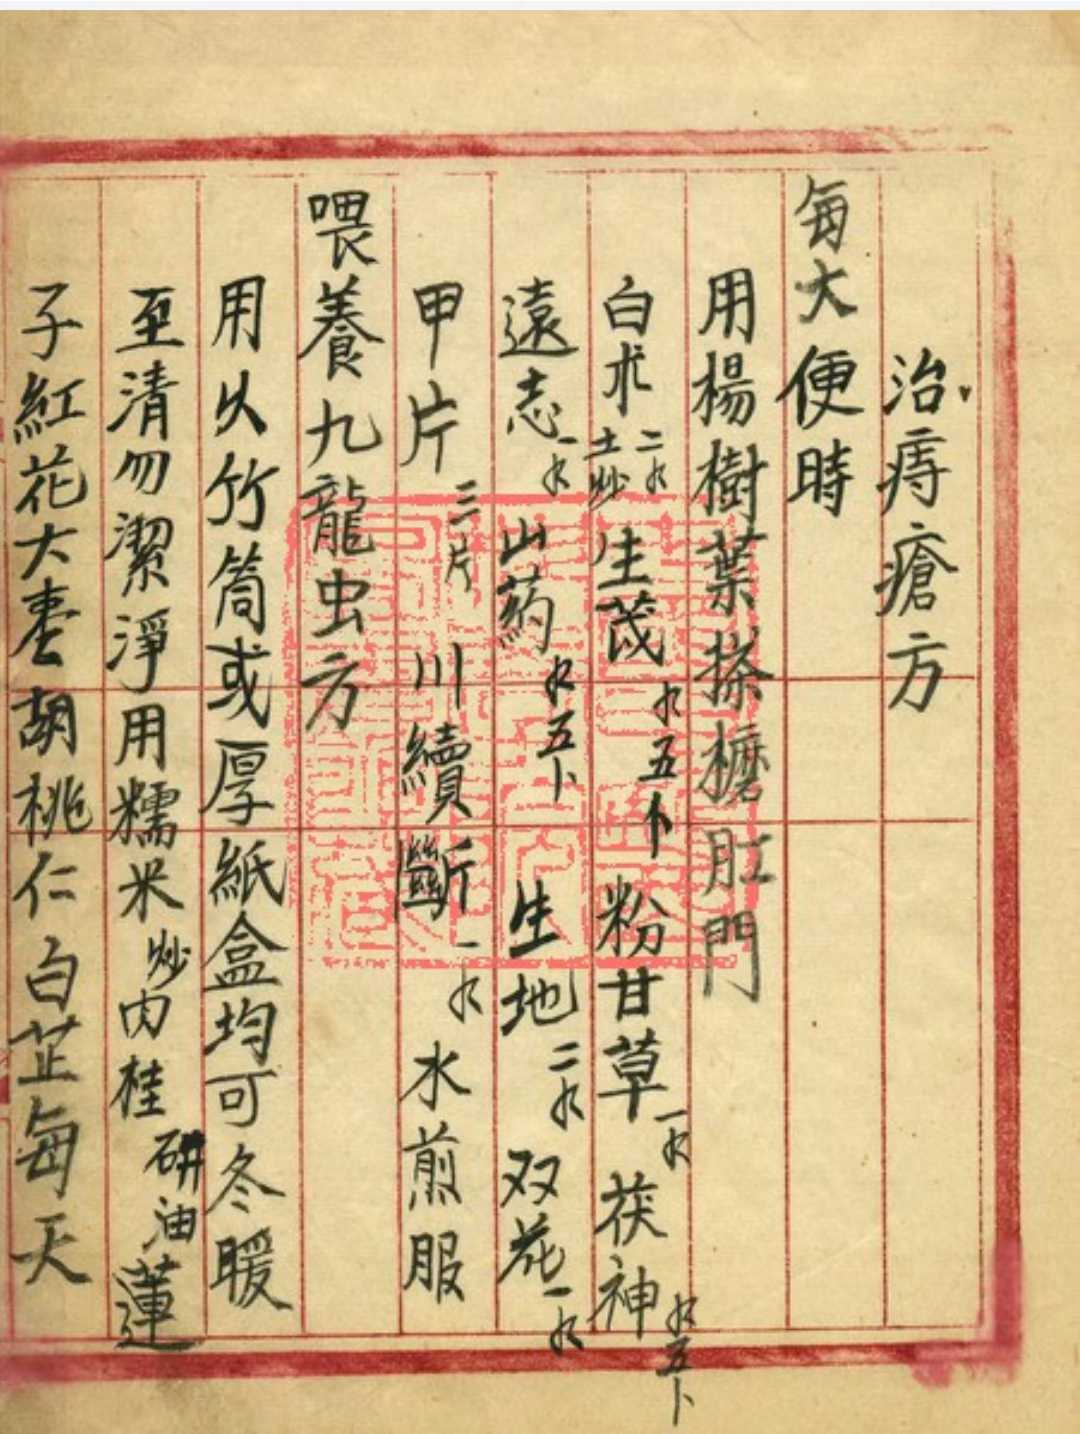 治痔瘡方
每大便時
用楊樹葉搽擦肛門
白朮二水土炒生茂水五卜粉甘草一水茯神水五卜
遠志一水山药水五卜生地二水双花一水
甲片三片川續斷一水水煎服
喂養九龍虫方
用以竹筒或厚紙盒均可冬暖
至清勿潔淨用糯米炒肉桂研油蓮
子紅花大枣胡桃仁白芷每天